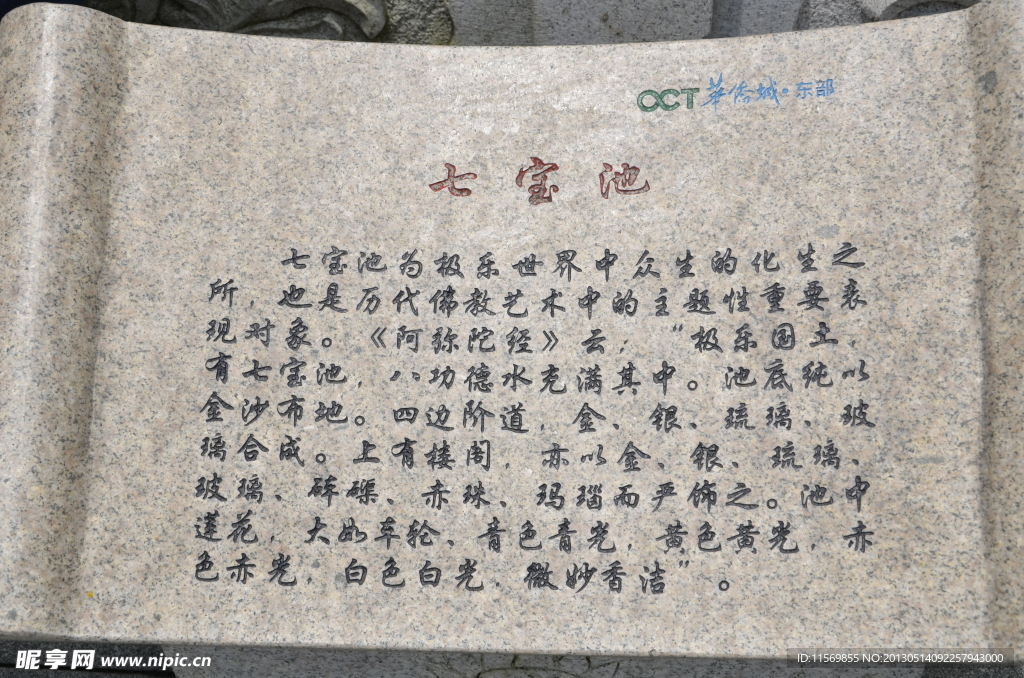 OCT 华侨城·东部
七宝池
七宝池为极乐世界中众生的化生之
所，也是历代佛教艺术中的主题性重要表
现对象。《阿弥陀经》云：“极乐国土，
有七宝池，八功德水充满其中。池底纯以
金沙布地。四边阶道，金、银、琉璃、玻
璃合成。上有楼阁，亦以金、银、琉璃、
玻璃、砗磲、赤珠、玛瑙而严饰之。池中
莲花，大如车轮、青色青光，黄色黄光，赤
色赤光，白色白光，微妙香洁”。
昵享网 www.nipic.cn
ID:11569855 NO:20130514092257943000